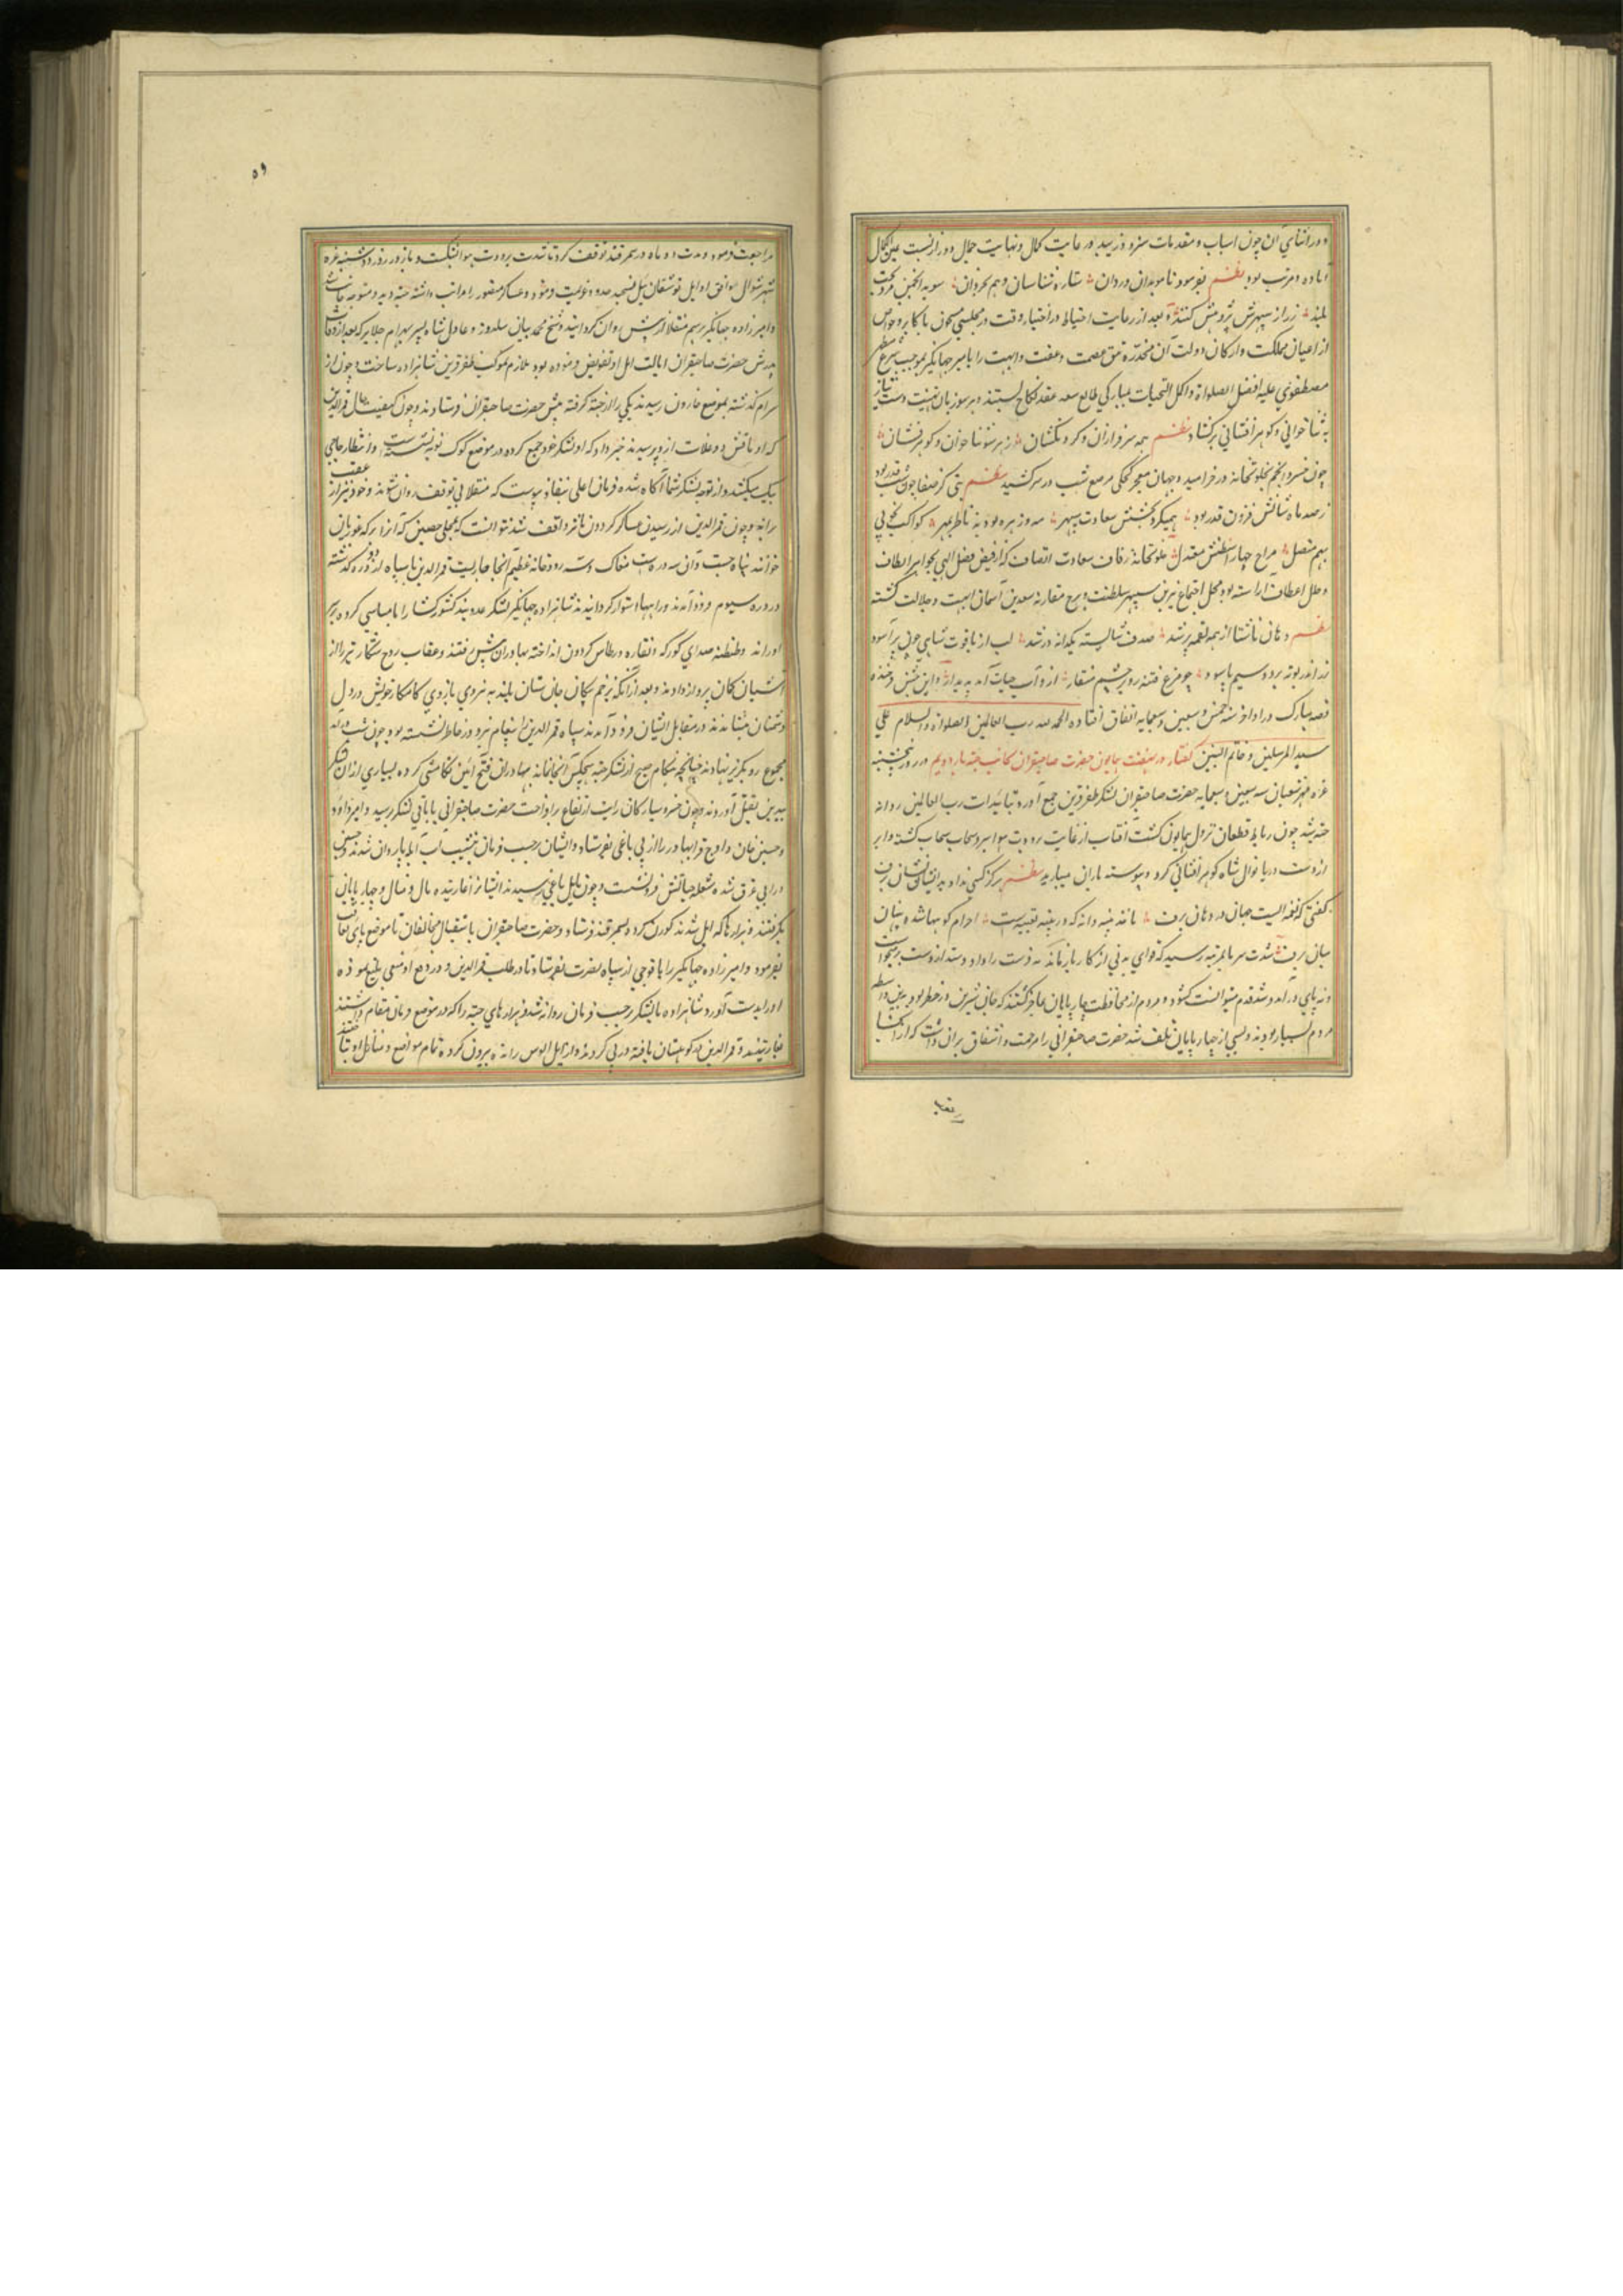 و در اثنای آن چون اسباب و مقدمات در غایت کمال و نهایت جمال و دور از نسبت عین الکمال
آماده و مرتب بود نظم بفرمود تا موبدان و ردان ستاره شناسان و هم بخردان سوی انجمن
بلند ز راز سپهرش پژوهش کنند بعد از رعایت احتیاط در اختیار وقت در مجلسی مشحون باکابر و خواص
از اعیان مملکت و ارکان دولت آن مخدره تتق عصمت و عفت و ابهت را با میر جهانگیر بموجب شرع مطهر
مصطفوی علیه افضل الصلواة و اکمل التحیات بمبارکی طالع سعد عقد نکاح بستند و بر سو زبان تهنیت و دست نیاز
به ثنا خوانی و گوهر افشانی برگشاد نظم همه سرفرازان و گردنکشان ز هر سو ثنا خوان و گوهر فشان
چون خسرو انجم بخلوتخانه در خرامید و جهان معجر کحلی مرصع شب در سر کشید نظم بتی کز صفا چون شب قدر بود
ز صد ماه تابش فزون قدر بود همیکرد بخشش سعادت سپهر مه و زهره بودند ناظر بمهر کواکب
بهم متصل مزاج چهار اسطقس معتدل خلوتخانه زفاف سعادت اتصاف که از فیض فضل الهی بجواهر الطاف
و حلل اعطاف آراسته بود محل اجتماع نیرین سپهر سلطنت و برج مقارنه سعدین آسمان ابهت و جلالت گشته
نظم دهان ناشتا از همه لقمه پر شد صدف شایسته یکدانه در شد لب از یاقوت شاهی چون بر آسود
زر اندر بوته برد و سیم پالود چو مرغ فتنه رو منقار از و آب حیات آمد پدیدار و این جشن فرخنده
قصه مبارک در اواخر سنه خمس و سبعین و سبعمایه اتفاق افتاده الحمد لله رب العالمین و الصلوة و السلام علی
سید المرسلین و خاتم النبیین گفتار در نهضت همایون حضرت صاحبقران بجانب جته بار دویم در روز پنجشنبه
غره شعبان سنه سبعین و سبعمایه حضرت صاحبقران لشکر ظفر قرین جمع آورد و بتائیدات رب العالمین روانه
جته شد چون رباط قطغان نزول همایون گشت آفتاب از غایت برودت هوا سر و سحاب گشت و ابر
از دست دریا نوال شاه گوهر افشانی کرد و پیوسته باران میبارید نظم هرگز کسی نداد بدینسان نشان برف
گفتی که لقمه ایست جهان در دهان برف مانند پنبه دانه که در پنبه تعبیه است اجرام کوهها شده پنهان
میان برف شدت سرما بمرتبه رسید که قوای بدنی از کار باز ماند نه دست را داد و ستد از دست بر میخواست
و نه پای در آمد و شد قدم میتوانست گشود و مردم از محافظت چارپایان عاجز گشتند که جان شیرین در خطر بود بدین واسطه
مردم بسیار بودند و بسی از چهارپایان تلف شد حضرت صاحبقرانی را مرحمت و اشفاق بران داشت که از آنجا
۵۹
مراجعت فرمود و مدت دو ماه در سمرقند توقف کرد تا شدت برودت هوا بشکست و باز در روز دوشنبه غره
شهر شوال موافق اوایل توشقان ئیل عزیمت فرمود و عساکر منصور را مراتب داشته متوجه جانب جته شد
و امیرزاده جهانگیر برسم منقلا از پیش روان گردانید و شیخ محمد بیان سلدوز و عادل شاه پسر بهرام جلایر که بعد از وفات
پدرش حضرت صاحبقران ایالت ایل او تفویض فرموده بود ملازم موکب ظفر قرین شاهزاده ساخت و چون از
سیرام گذشته بموضع جارون رسیدند یکی را از جته گرفته پیش حضرت صاحبقران فرستادند و چون کیفیت حال قمرالدین
که او دوغلات از و پرسیدند خبر داد که او لشکر خود جمع کرده در موضع کوک توبه نشسته است و انتظار حاجی
بیک میکشد و از توجه لشکر شما آگاه نشده فرمان اعلی بنفاذ پیوست که منقلا بی توقف روان شوند و خود نیز از عقب
براند و چون قمرالدین از رسیدن عساکر گردون مآثر واقف شد نتوانست که بمحلی حصین که آنرا برکه غوریان
خوانند پناه جست و آن سه دره است مغاک و سه رودخانه عظیم آنجا جاریست قمرالدین با سپاه از دو دره گذشته
در دره سیوم فرود آمدند و راهها استوار گردانیدند شاهزاده جهانگیر لشکر عدو بند کشورگشا را یاسامیشی کرده بر سر
او راند و طنطنه صدای کورکه و نقاره در طاس گردون انداخته بهادران پیش رفتند و عقاب روح شکار تیر را از
آشیان کمان پرواز دادند و بعد از آنکه بزخم پیکان جان ستان بلند به نیروی بازوی کامکار خویش در دل
دشمنان نشاندند در مقابل ایشان فرود آمدند سپاه قمرالدین را نبرد در خاطر نشسته بود چون شب در آمد
مجموع رو بگریز نهادند چنانچه هنگام صبح از لشکر جته هیچکس آنجا نماند بهادران فتح آئین تکامیشی کرده بسیاری از آن لشکر
بیدین بقتل آوردند و چون خسرو سیارگان رایت ارتفاع برافراخت حضرت صاحبقرانی با باقی لشکر رسید و امیر داود
و حسین خان و اوچ قرا بهادر را از پی یاغی بفرستاد و ایشان بر حسب فرمان بنشیب آب ایله روان شدند و حسین
در آبی غرق شده شعله حیاتش فرو نشست و چون بایل یاغی رسیدند ایشانرا غارتیده مال و منال و چهارپایان
بگرفتند و هزارها که ایل شدند کوران کرد و بسمرقند فرستاد و حضرت صاحبقران باستقبال مخالفان تا موضع پای تاق
بفرمود و امیرزاده جهانگیر را با فوجی از سپاه نصرت بفرستاد تا در طلب قمرالدین و در دفع او سعی بلیغ نموده
او را بدست آورد شاهزاده با لشکر بر حسب فرمان روانه شد و هزارهای جته را که در موضع فرمان مقام داشتند
غارتیدند و قمرالدین در کوهستان یافته در پی کردند و از ایل الوس رانده بیرون کرده تمام مواضع و منازل او